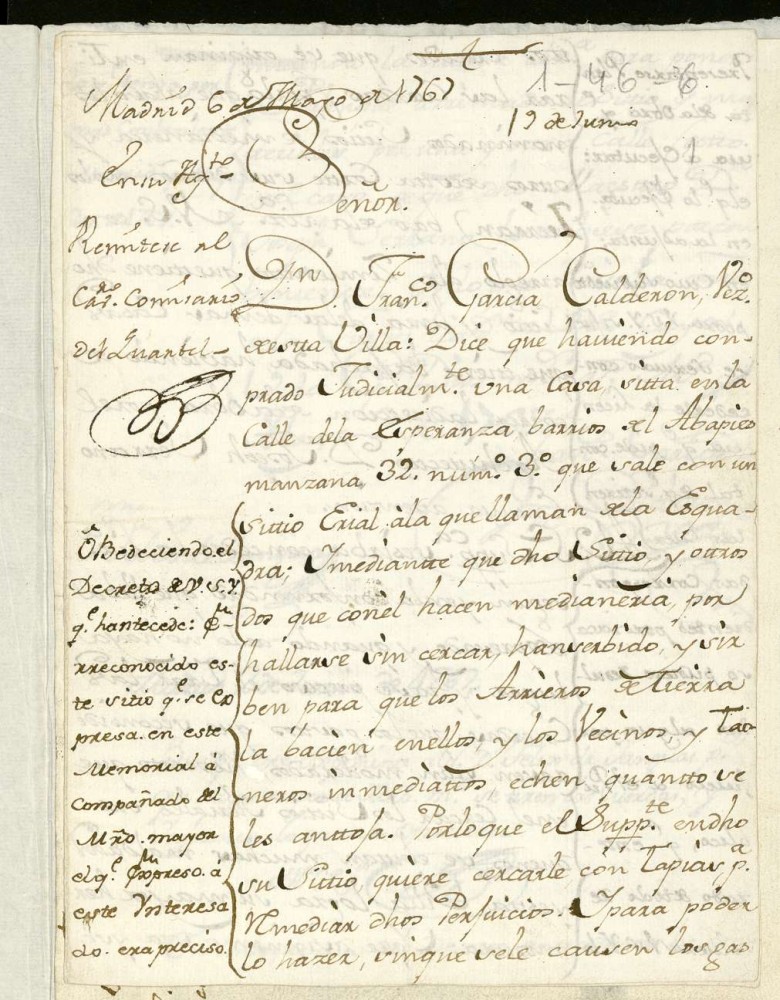 1-46-6.
Madrid 6 de Marzo de 1767
19 de Junio
En su Ag.te
Señor.
Remitese al
Cav.ro Comisario
del Quartel
Dn. Fran.co Garcia Calderon, Vez.o
de esta Villa: Dice que haviendo con-
prado Judicialm.te una Casa sitta en la
Calle dela Esperanza barrios del Abapies
manzana, 32. num.o 3.o que sale con un
sittio Erial, àla que llaman dela Esqua-
dra; Imediantte que dho Sittio, y ottros
dos que conèl hacen medianeria, por
hallarse sin cercar, hanserbido, y sir
ben para que los Arrieros de Tierra
la bacien enellos, y los Vecinos, y Tao-
neros inmediattos, echen quantto se
les anttoja. Porloque el Supp.te endho
su Sittio, quiere cercarle con tapias, p.a
Remediar dhos Perjuicios. Ipara poder
lo hazer, sinque sele causen los gas
Obedeciendo. el
Decreto de V.S.Y
q.e hantecede:
rreconocido es-
te sitio q.e se ex
presa. en este
Memorial à
compañado del
Mro. mayor
el q.e expreso. à
este Ynteresa
do. era preciso.